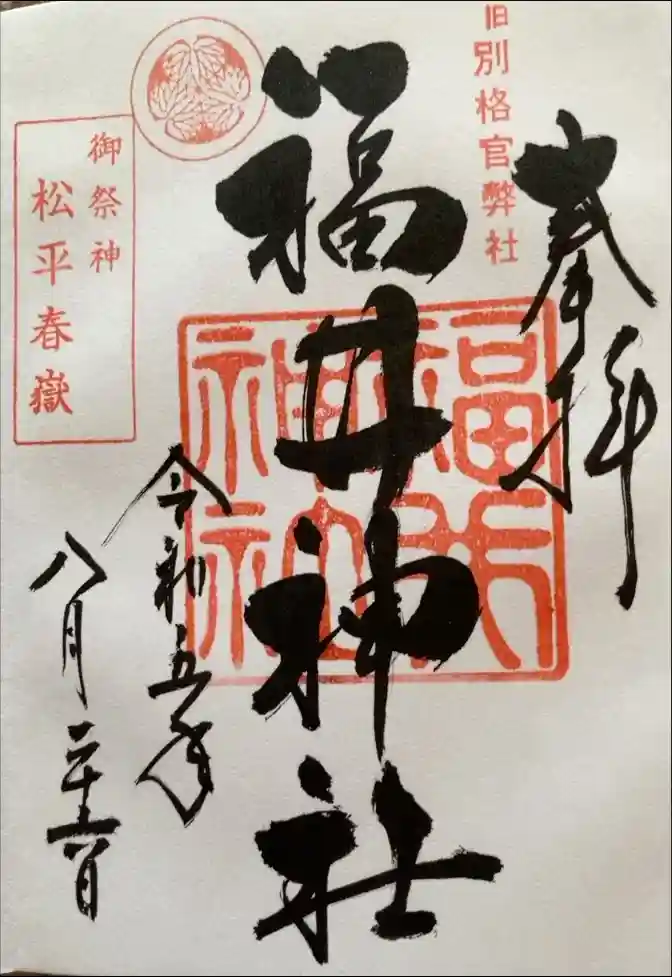 奉拝
旧別格官弊社
福井神社
福井
神社
御祭神
松平春嶽
令和五年
八月二十六日